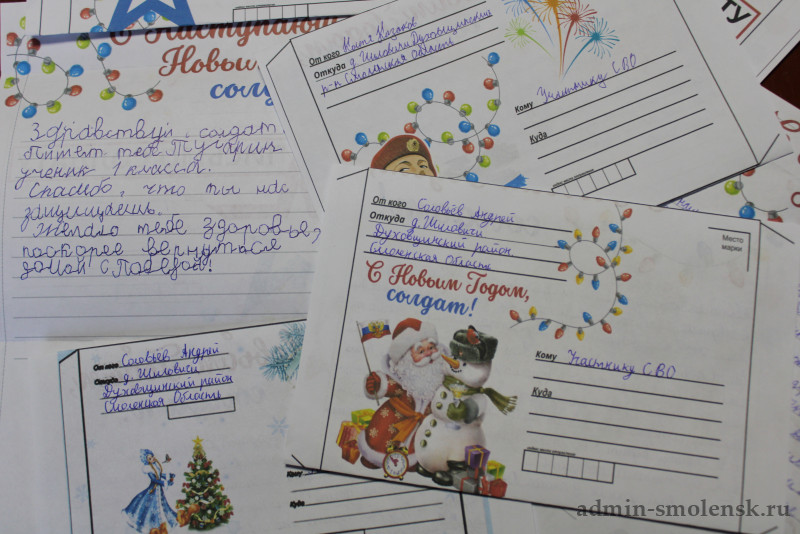 С Наступаю
Новым
солд
Здравствуй, солдат.
Пишет тебе Тучарин
ученик 1 класса.
Спасибо, что ты нас
защищаешь.
Желаю тебе здоровье,
поскорее вернуться
домой с Победой!
От кого Катя Казаков
Откуда д. Шиловичи Духовщинский
р-н Смоленская область
Кому Участнику СВО
Куда
ту
От кого Соловьёв Андрей
Откуда д. Шиловичи
Духовщинский район
Смоленская Область
Место
марки
С Новым Годом,
солдат!
Кому Участнику СВО
Куда
От кого Соловьёв Андрей
Откуда д. Шиловичи
Духовщинский район
Смоленская Область
Кому
Куда
admin-smolensk.ru